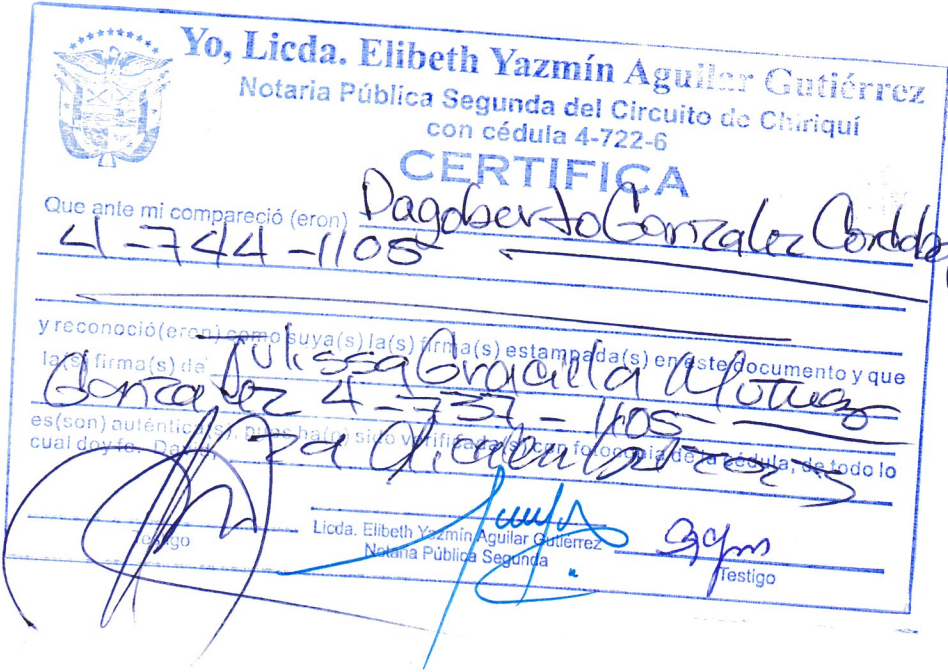 Yo, Licda. Elibeth Yazmín Aguilar Gutiérrez
Notaria Pública Segunda del Circuito de Chiriquí
con cédula 4-722-6
CERTIFICA
Que ante mi compareció (eron) Dagoberto Gonzalez Cordoba
4-744-1105
y reconoció(eron) como suya(s) la(s) firma(s) estampada(s) en este documento y que
la(s) firma(s) de Julissa Graciela
Gonzalez 4-737-1105
es(son) auténtica(s), pues ha(n) sido verificada(s) con fotocopia de la cédula, de todo lo
cual doy fe. David,
Testigo
Licda. Elibeth Yazmín Aguilar Gutiérrez
Notaria Pública Segunda
Testigo